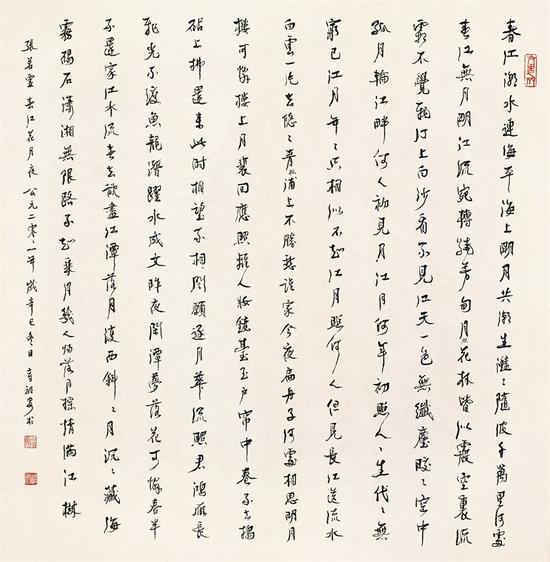 春江潮水連海平海上明月共潮生灩〻隨波千萬里何處
春江無月明江流宛轉繞芳甸月照花林皆似霰空裏流
霜不覺飛汀上白沙看不見江天一色無纖塵皎〻空中
孤月輪江畔何人初見月江月何年初照人〻生代〻無
窮已江月年〻只相似不知江月照何人但見長江送流水
白雲一片去悠〻青楓浦上不勝愁誰家今夜扁舟子何處相思明月
樓可憐樓上月裴回應照離人妝鏡臺玉户簾中卷不去搗
砧上拂還来此時相望不相聞願逐月華流照君鴻雁長
飛光不度魚龍潛躍水成文昨夜閒潭夢落花可憐春半
不還家江水流春去欲盡江潭落月復西斜〻月沉〻藏海
霧碣石瀟湘無限路不知乘月幾人歸落月摇情滿江樹
張若虛春江花月夜 公元二零〻一年 歲辛巳冬日